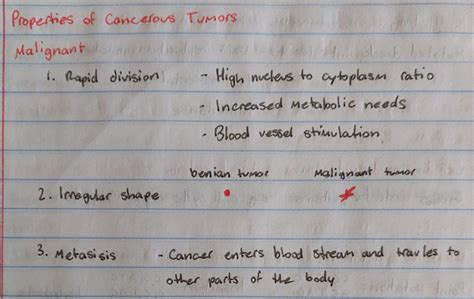 Properties of Cancerous Tumors
Malignant
1. Rapid division - High nucleus to cytoplasm ratio
- Increased Metabolic needs
- Blood vessel stimulation
benian tumor Malignant tumor
2. Irregular shape
3. Metasisis - Cancer enters blood stream and travles to
other parts of the body